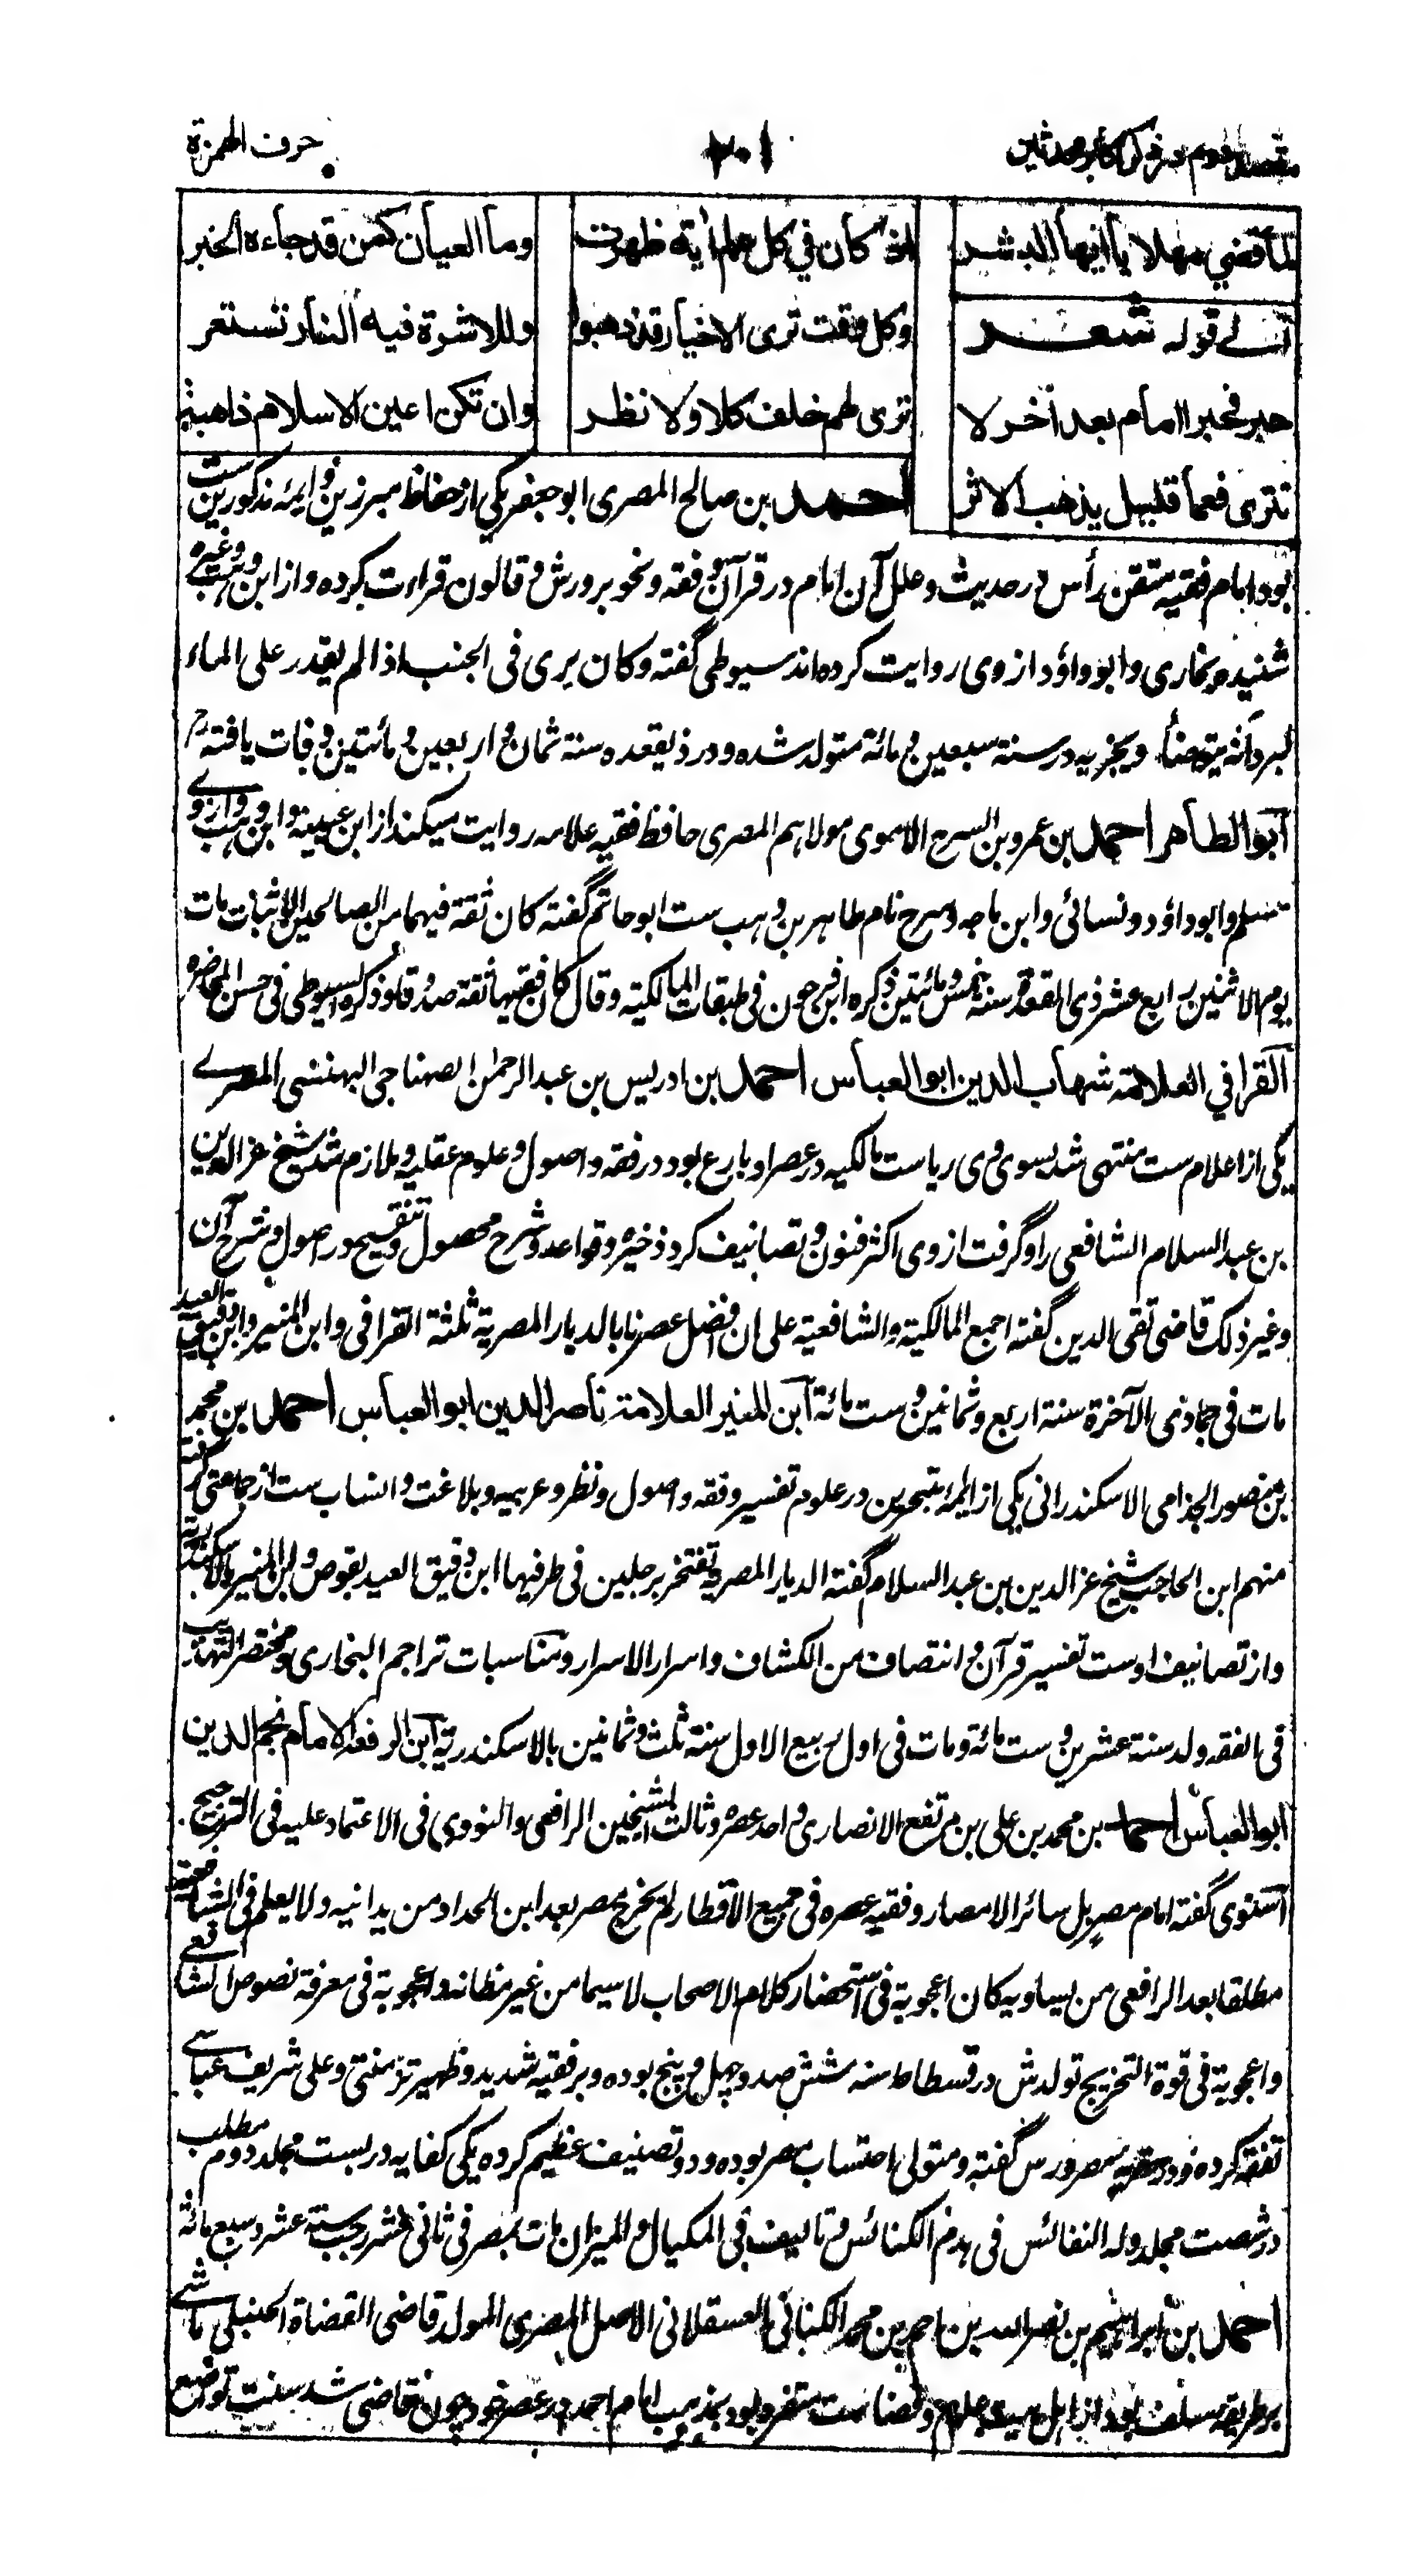 مقصد دوم در ذکر اکابر محدثین
۲۰۱
حرف الهمزة
لما قضي مهلا يا ايها البشر
اذ كان في كل عام آية ظهرت
وما العيان كمن قد جاءه الخبر
الے قوله شعر
وكل وقت ترى الاخيار قد ذهبوا
وللاشرة فيه النار تستعر
حبر فحبر امام بعد آخر لا
ترى لهم خلف كلا ولا نظر
وان تكن اعين الاسلام ذاهبة
تترى فعما قليل يذهب الاثر
احمد بن صالح المصری ابو جعفر یکی از حفاظ مبرزین و ایمه مذکورین ست
بود امام فقیه متقن رأس در حدیث و علل آن امام در قرآن و فقه و نحو بر ورش و قالون قراءت کرده و از ابن وہب وغیرہ
شنیده و بخاری و ابو داؤد از وی روایت کرده اند سیوطی گفته وکان یری فی الجنب اذا لم یقدر علی الماء
لبرد انه یتوضأ ویجزیه در سنة سبعین و مائة متولد شده و در ذیقعده سنة ثمان و اربعین و مائتین وفات یافته رح
ابو الطاهر احمد بن عمرو بن السرح الاموی مولاہم المصری حافظ فقیه علامه روایت میکند از ابن عیینة و ابن وہب و از وے
مسلم و ابو داؤد و نسائی و ابن ماجه و سرح نام طاہر بن وہب ست ابو حاتم گفته کان ثقة فیهما من الصالحین الاثبات مات
یوم الاثنین رابع عشر ذی القعده سنة خمس و مائتین ذکره ابن فرحون فی طبقات المالکیة وقال کان فقیها ثقة صدوقا و ذکره السیوطی فی حسن المحاضره
القرافي العلامة شهاب الدین ابو العباس احمد بن ادریس بن عبد الرحمن الصنهاجی البهنسی المصرے
یکی از اعلام ست منتهی شد بسوی وی ریاست مالکیه در عصر او بارع بود در فقه و اصول و علوم عقلیه و ملازم شد شیخ عز الدین
بن عبد السلام الشافعی را و گرفت از وی اکثر فنون و تصانیف کرد ذخیره و قواعد و شرح محصول و تنقیح در اصول و شرح آن
وغیر ذلک قاضی تقی الدین گفته اجمع المالکیة والشافعیة علی ان افضل عصرنا بالدیار المصریة ثلثة القرافی و ابن المنیر و ابن دقیق العید
مات فی جمادی الآخرة سنة اربع و ثمانین و ست مائة ابن المنیر العلامة ناصر الدین ابو العباس احمد بن محمد
بن منصور الجذامی الاسکندرانی یکی از ایمه متبحرین در علوم تفسیر و فقه و اصول و نظر و عربیه و بلاغت و انساب ست از جماعتی گرفته
منهم ابن الحاجب شیخ عز الدین بن عبد السلام گفته الدیار المصریة تفتخر برجلین فی طرفیها ابن دقیق العید بقوص و ابن المنیر بالاسکندریة
و از تصانیف اوست تفسیر قرآن و انتصاف من الکشاف و اسرار الاسرار و مناسبات تراجم البخاری و مختصر التهذیب
فی الفقه ولد سنة عشرین و ست مائة و مات فی اول ربیع الاول سنة ثلث و ثمانین بالاسکندریة ابن الرفعة الامام نجم الدین
ابو العباس احمد بن محمد بن علی بن مرتفع الانصاری واحد عصره و ثالث الشیخین الرافعی و النووی فی الاعتماد علیه فی الترجیح
اسنوی گفته امام مصر بل سائر الامصار و فقیه عصره فی جمیع الاقطار لم یخرج مصر بعد ابن الحداد من یدانیه ولا یعلم فی الشافعیة
مطلقا بعد الرافعی من یساویه کان اعجوبة فی استحضار کلام الاصحاب لا سیما من غیر مظانه و اعجوبة فی معرفة نصوص الشافعی
و اعجوبة فی قوة التخریج تولدش در قسطاط سنه شش صد و چهل و پنج بوده و بر فقیه شدید و ظهیر تزمنتی و علی شریف عباسے
تفقه کرده و در معزیه مصر درس گفته و متولی احتساب مصر بوده و دو تصنیف عظیم کرده یکی کفایه در بست مجلد دوم مطلب
در شصت مجلد وله النفائس فی ہدم الکنائس و تالیف فی المکیال و المیزان مات بمصر فی ثانی عشر رجب ستة عشر و سبع مائة
احمد بن ابراهیم بن نصر الله بن احمد بن محمد الکنانی العسقلانی الاصل المصری المولد قاضی القضاة الحنبلی ماشے
بر طریقه سلف بود از اهل بیت علم و قضا ست متفرد بود بمذهب امام احمد در عصر خود چون قاضی شد سنت تواضع